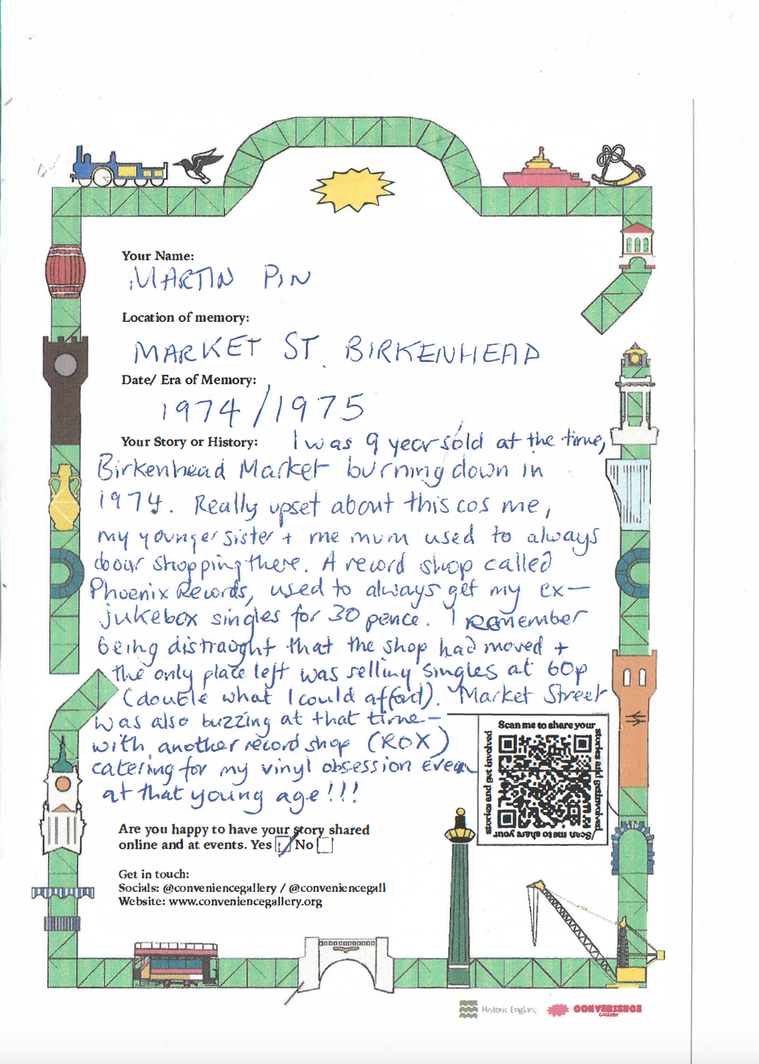 Your Name:
MARTIN PIN
Location of memory:
MARKET ST. BIRKENHEAD
Date/ Era of Memory:
1974/1975
Your Story or History: I was 9 years old at the time,
Birkenhead Market burning down in
1974. Really upset about this cos me,
my younger sister + me mum used to always
do our shopping there. A record shop called
Phoenix Records, used to always get my ex-
jukebox singles for 30 pence. I remember
being distraught that the shop had moved +
the only place left was selling singles at 60p
(double what I could afford). Market Street
was also buzzing at that time-
with another record shop (ROX)
catering for my vinyl obsession even
at that young age!!!
Scan me to share your
stories and get involved
Scan me to share your
stories and get involved
Are you happy to have your story shared
online and at events. Yes No
Get in touch:
Socials: @conveniencegallery / @conveniencegall
Website: www.conveniencegallery.org
Historic England
CONVENIENCE
GALLERY